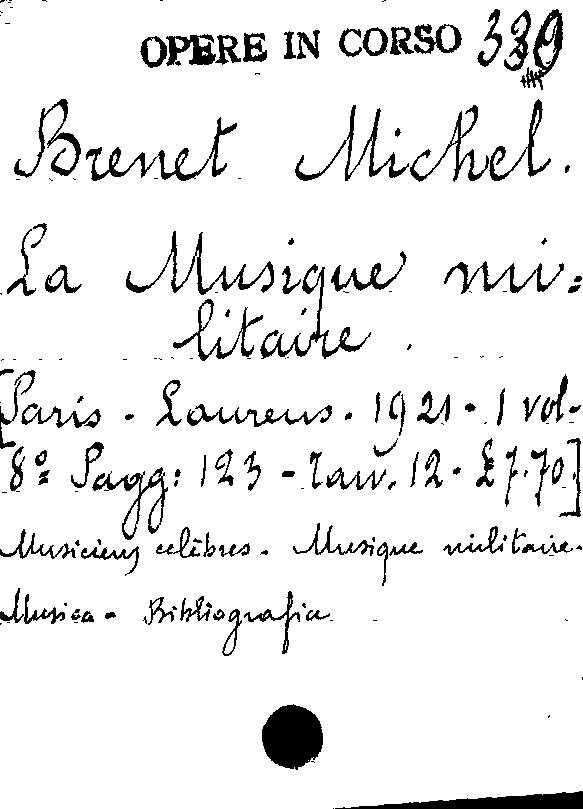 OPERE IN CORSO 339
Brenet Michel.
La Musique mi=
litaire.
[Paris - Laurens - 1921 - 1 vol-
8º Pagg: 123 - Tav. 12 - £ 7.70]
Musiciens celèbres - Musique militaire -
Musica - Bibliografia